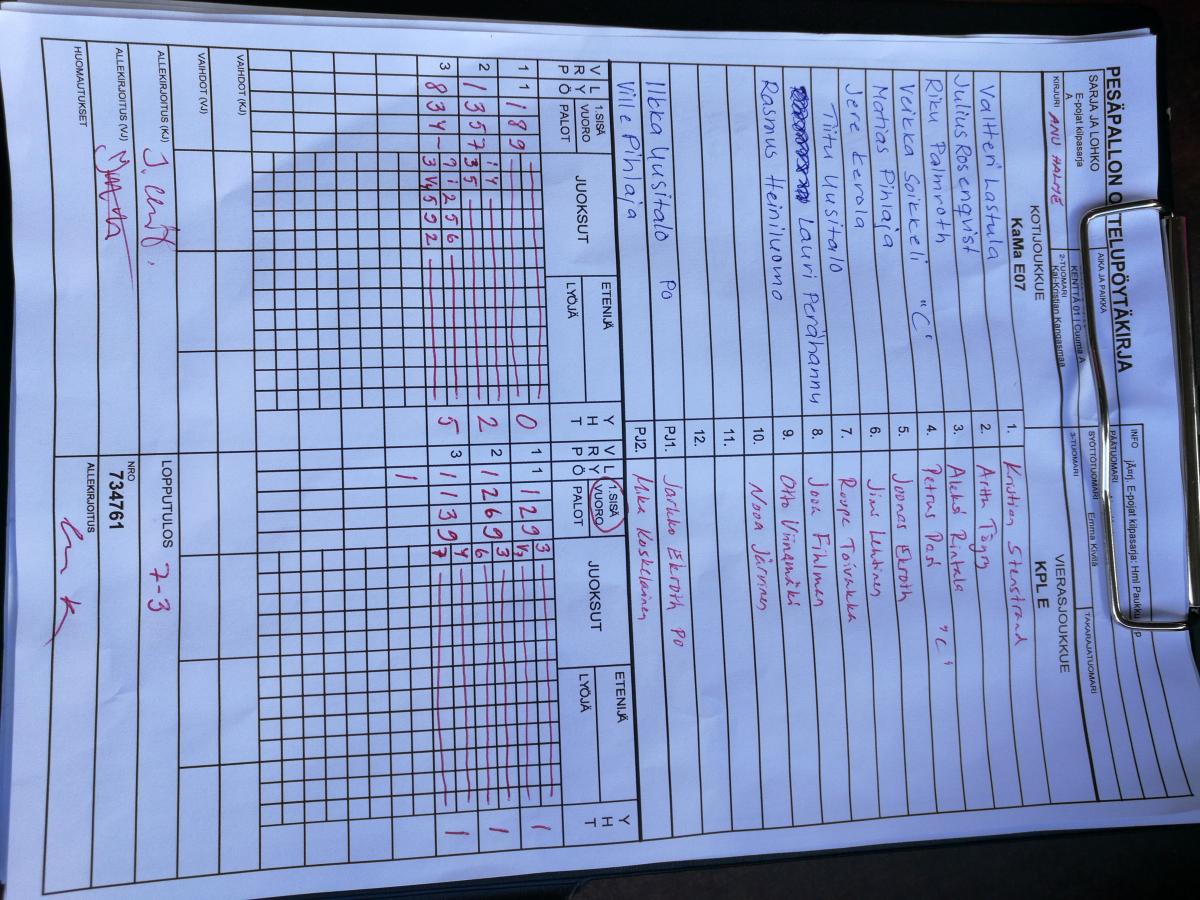 PESÄPALLON OTTELUPÖYTÄKIRJA
SARJA JA LOHKO
E-pojat kilpasarja
A
AIKA JA PAIKKA
INFO
KENTTÄ 01 | Cuuma A
PÄÄTUOMARI
KIRJURI ANU HALME
2-TUOMARI
Kai-Kristian Kangasmaa
3-TUOMARI
SYÖTTÖTUOMARI Emma Kivilä
TAKARAJATUOMARI
KOTIJOUKKUE
KaMa E07
VIERASJOUKKUE
KPL E
Valtteri Lastula 1. Kristian Stenstrand
Julius Rosenqvist 2. Arttu Töyry
Riku Palmroth 3. Aleksi Rintala
Veikka Soikkeli "C" 4. Petrus Pasi "C"
Matias Pihlaja 5. Joonas Ekroth
Jere Kerola 6. Jimi Lehtinen
Tiitu Uusitalo 7. Roope Toivakka
Lauri Perähannu 8. Joona Fihlman
Rasmus Heiniluoma 9. Otto Viinamäki
10. Nooa Järvinen
11.
12.
Ilkka Uusitalo PO PJ1. Jarkko Ekroth PO
Ville Pihlaja PJ2. Mika Koskelainen
V R P L Y Ö 1.SISÄ VUORO PALOT JUOKSUT ETENIJÄ LYÖJÄ Y H T V R P L Y Ö 1.SISÄ VUORO PALOT JUOKSUT ETENIJÄ LYÖJÄ Y H T
1 1 1 8 9 0 1 1 1 2 9 3 1
2 1 3 5 7 3 5 2 2 1 2 6 9 3 6 1
3 8 3 4 5 3 1 1 3 9 4 7 1
1
VAIHDOT (KJ)
VAIHDOT (VJ)
ALLEKIRJOITUS (KJ)
LOPPUTULOS 7-3
ALLEKIRJOITUS (VJ)
NRO
734761
HUOMAUTUKSET
ALLEKIRJOITUS